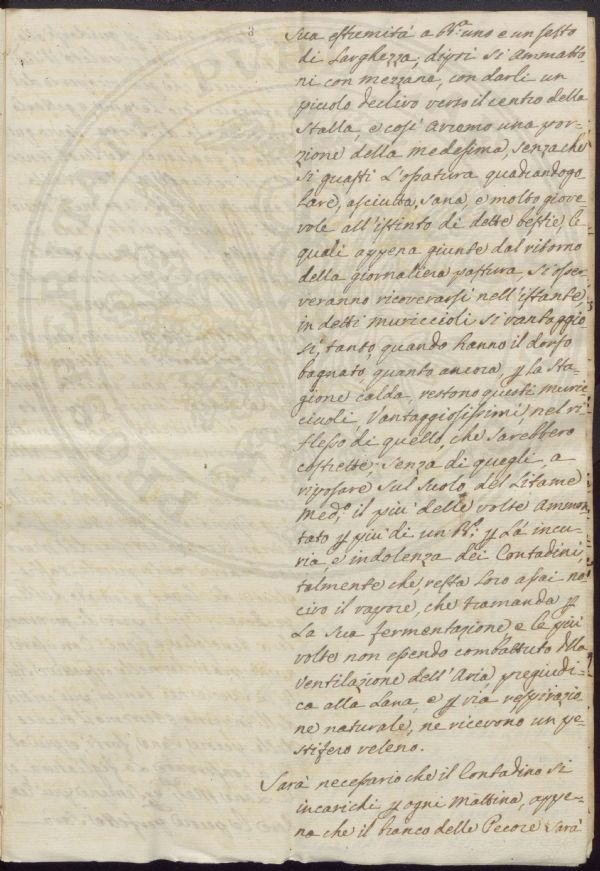 3
Sua estremità a Br.ª uno e un sesto
di Larghezza, dipoi si Ammatto
ni con mezzana, con darli un
picolo declivo verso il centro della
Stalla, e così Avremo una por=
zione della medesima, senza chè
Si guasti L'ossatura quadrandogo
Lare, asciutta, Sana, e molto giove
vole all'istinto di dette bestie, le
quali appena giunte dal ritorno
della giornaliera pastura, si osser
veranno ricoverarsi nell'istante
in detti muriccioli si vantaggio
si, tanto quando hanno il dorso
bagnato, quanto ancora, p la Sta=
gione calda, restono questi muric
ciuoli, Vantaggiosissimi, nel ri
flesso, di quello, che Sarebbero
costrette, Senza di quegli, a
riposare Sul Suolo del Litame
med.º il più delle volte Ammon
tato p più di un Br.º p La incu=
ria, e indolenza dei Contadini,
talmente che, resta loro assai no
civo il vapore, che tramanda p
La Sua fermentazione, e le più
volte non essendo combattuto dlla
Ventilazione dell'Aria pregiudi=
ca alla Lana, e p via respirazio
ne naturale, ne ricevono un pe=
stifero veleno.
Sarà necessario che il Contadino Si
incarichi p ogni Mattina, appe=
na che il branco delle Pecore Sarà